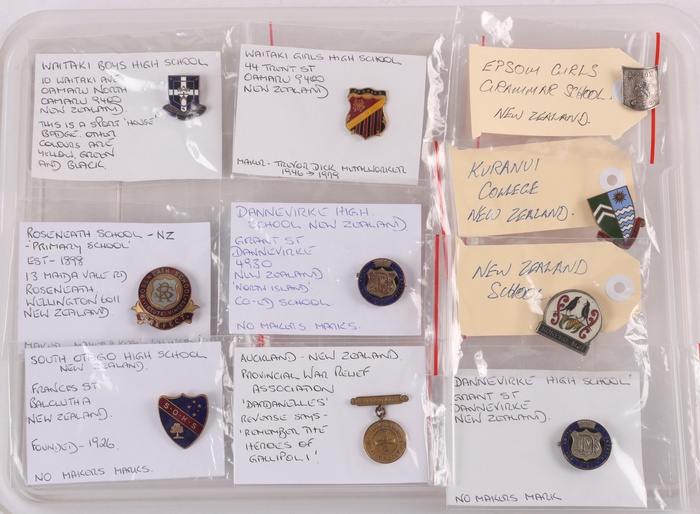 WAITAKI BOYS HIGH SCHOOL
10 WAITAKI AVE
OAMARU NORTH
OAMARU 9400
NEW ZEALAND.
THIS IS A SPORT 'HOUSE'
BADGE. OTHER
COLOURS ARE
YELLOW, GREEN
AND BLACK.
WAITAKI GIRLS HIGH SCHOOL
44 TRENT ST
OAMARU 9400
NEW ZEALAND)
MAKER - TREVOR DICK METALWORKER
1946 → 1979
EPSOM GIRLS
GRAMMAR SCHOOL.
NEW ZEALAND.
KURANUI
COLLEGE
NEW ZEALAND.
NEW ZEALAND
SCHOOL
ROSENEATH SCHOOL - NZ
- 'PRIMARY SCHOOL'
EST - 1898
13 MAIDA VALE RD
ROSENEATH
WELLINGTON 6011
NEW ZEALAND)
ROSENEATH SCHOOL
PREFECT
DANNEVIRKE HIGH
SCHOOL NEW ZEALAND.
GRANT ST
DANNEVIRKE
4930
NEW ZEALAND
'NORTH ISLAND'
CO-ED SCHOOL
NO MAKERS MARKS.
SOUTH OTAGO HIGH SCHOOL
NEW ZEALAND.
FRANCES ST
BALCLUTHA
NEW ZEALAND.
FOUNDED - 1926
NO MAKERS MARKS.
S.O.H.S
AUCKLAND - NEW ZEALAND
PROVINCIAL WAR RELIEF
ASSOCIATION
'DARDANELLES'
REVERSE SAYS -
'REMEMBER THE
HEROES OF
GALLIPOLI'.
DANNEVIRKE HIGH SCHOOL'
GRANT ST
DANNEVIRKE
NEW ZEALAND.
NO MAKERS MARK